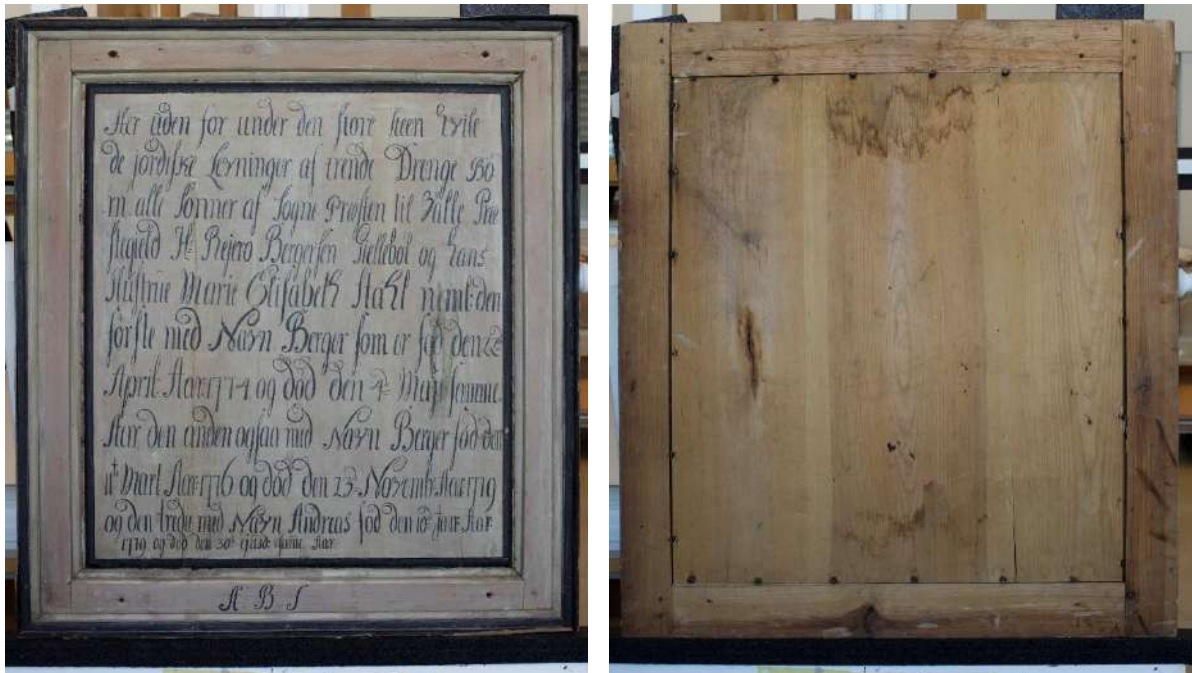 Her uden for under den store steen hvile
de jordiske Levninger af trende Drenge Bö
rn alle Sönner af Sogne Præsten til Valle Præ
stegield Hr Rejero Bergersen Giellebøl og hans
Hustrue Marie Elisabeth Stahl neml: den
förste med Navn Berger som er föd den 22
April Aar 1774 og död den 4 Maji samme
Aar den anden ogsaa med Navn Berger föd den
11t Mart Aar 1776 og död den 13 Novemb. Aar 1779
og den tredie med Navn Andreas föd den 18 Janr. Aar
1779 og död den 30t ejusd: samme Aar
A B S